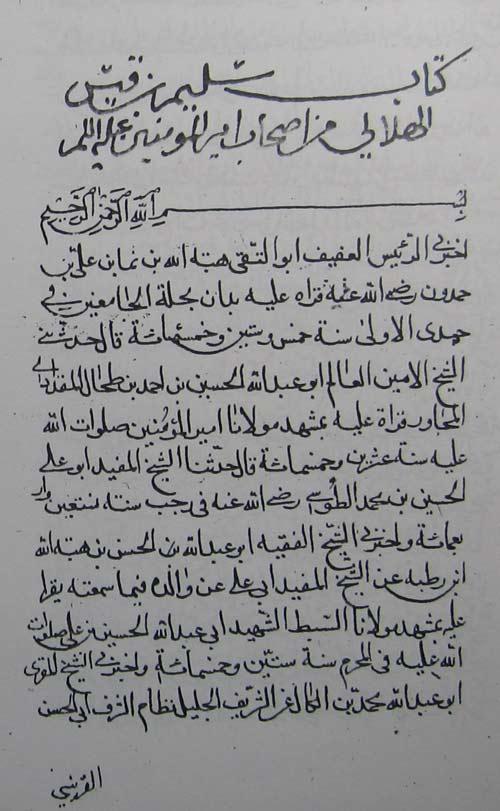 كتاب سليم بن قيس
الهلالي من اصحاب امير المومنين عليه السلم
بسم الله الرحمن الرحيم
اخبرني الرئيس العفيف ابو التقى هبة الله بن نما بن علي بن
حمدون رضي الله عنه قراة عليه بداره بحلة الجامعين في
جمدى الاولى سنة خمس وستين وخمسمائة قال حدثني
الشيخ الامين العالم ابو عبد الله الحسين بن احمد بن طحال المقدادي
المجاور قراة عليه بمشهد مولانا امير المؤمنين صلوات الله
عليه سنة عشرين وخمسمائة قال حدثنا الشيخ المفيد ابو علي
الحسن بن محمد الطوسي رضي الله عنه في رجب سنة تسعين وار
بعمائة واخبرني الشيخ الفقيه ابو عبد الله بن الحسن بن هبة الله
ابن رطبه عن الشيخ المفيد ابي علي عن والده فيما سمعته يقرا
عليه بمشهد مولانا السبط الشهيد ابي عبد الله الحسين بن علي صلوات
الله عليه في المحرم سنة ستين وخمسمائة واخبرني الشيخ المقري
ابو عبد الله محمد بن الكال عن الشريف الجليل نظام الشرف ابي الحسن
العريضي